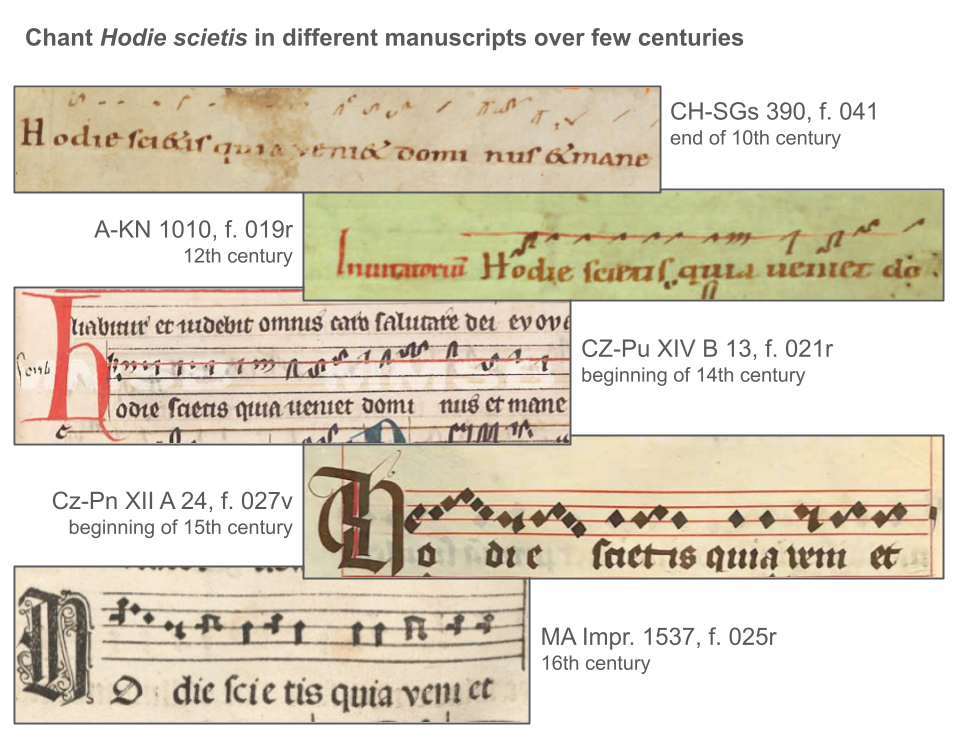 Chant Hodie scietis in different manuscripts over few centuries
Hodie sci&is quia veni& domi nus &mane
CH-SGs 390, f. 041
end of 10th century
A-KN 1010, f. 019r
12th century
Hodie scietis quia ueniet do
habitur et uidebit omnis caro salutare dei evovae
odie scietis quia ueniet domi nus et mane
CZ-Pu XIV B 13, f. 021r
beginning of 14th century
Cz-Pn XII A 24, f. 027v
beginning of 15th century
Ho die scietis quia veni et
HO die scie tis quia veni et
MA Impr. 1537, f. 025r
16th century